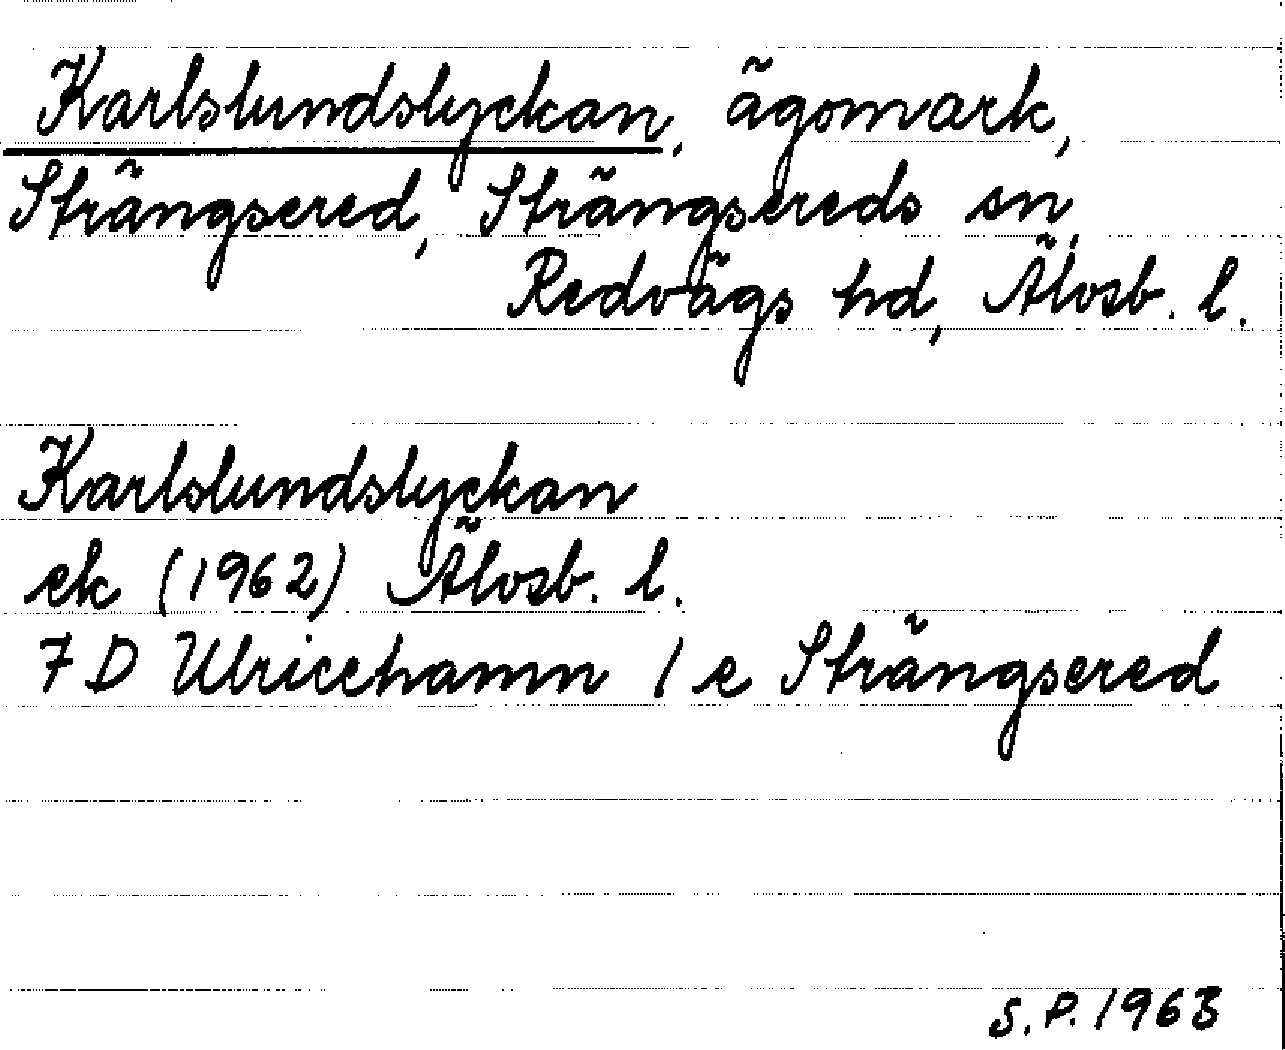 Karlslundslyckan, ägomark,
Strängsered, Strängsereds sn,
Redvägs hd, Älvsb. l.
Karlslundslyckan
ek (1962) Älvsb. l.
7 D Ulricehamn 1 e Strängsered
S.P. 1963